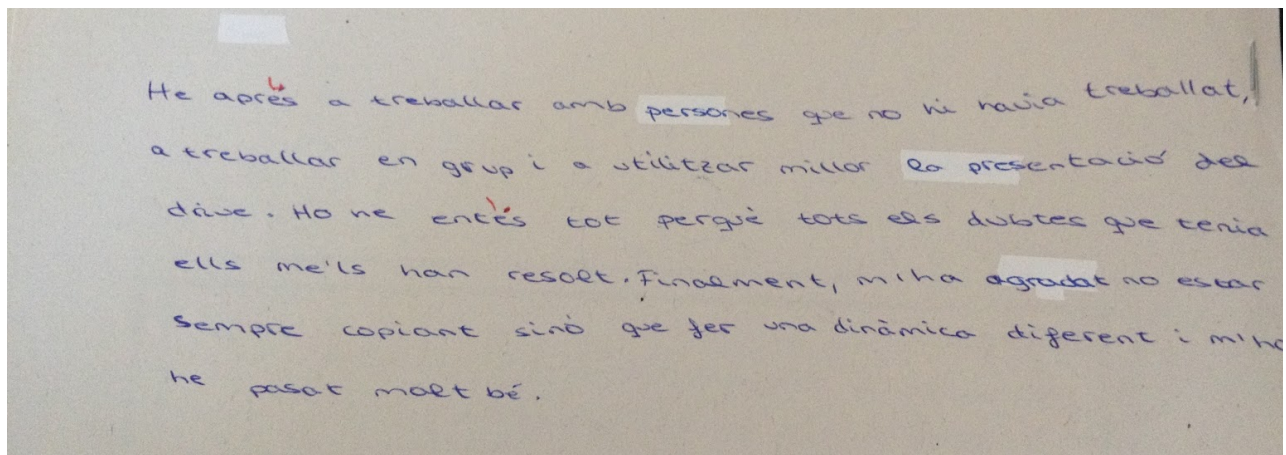 He après a treballar amb persones que no hi havia treballat,
a treballar en grup i a utilitzar millor la presentació del
drive. Ho he entès tot perquè tots els dubtes que tenia
ells me'ls han resolt. Finalment, m'ha agradat no estar
sempre copiant sinò que fer una dinàmica diferent i m'ho
he pasat molt bé.